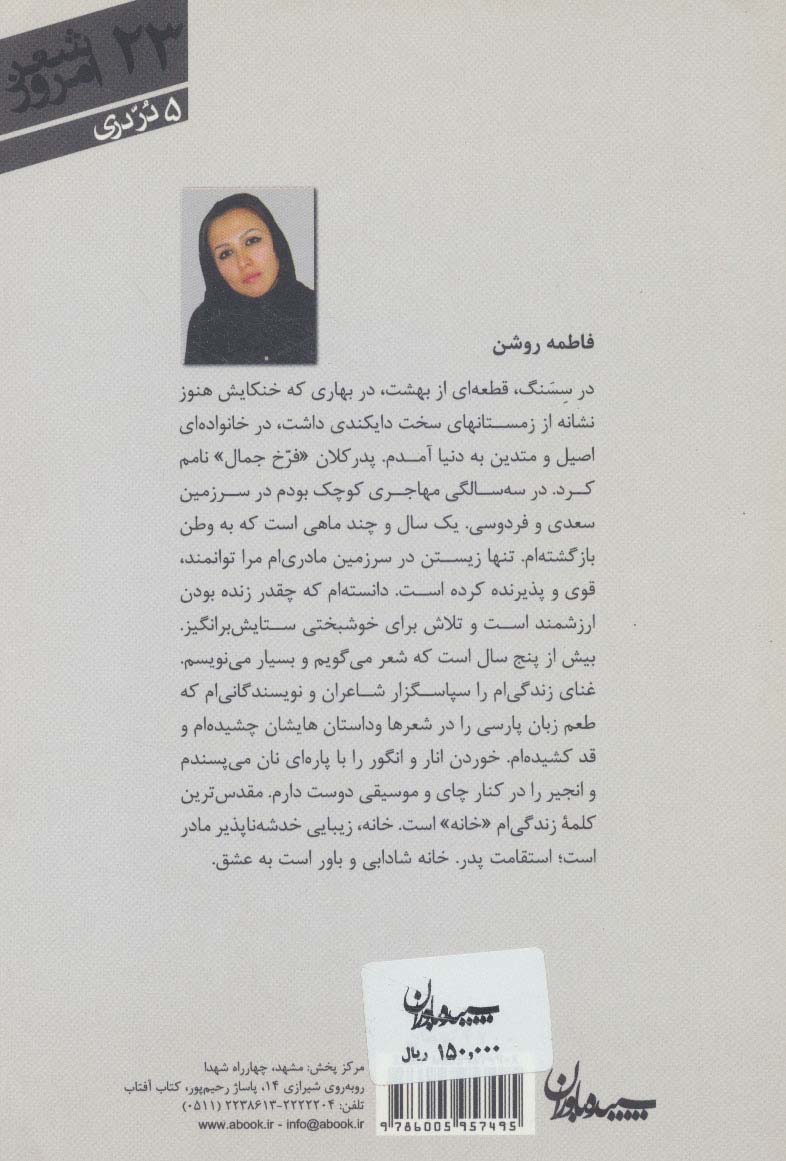 ۲۳ شعر امروز
۵ دُرّ دری
فاطمه روشن
در سِسَنگ، قطعه‌ای از بهشت، در بهاری که خنکایش هنوز
نشانه از زمستانهای سخت دایکندی داشت، در خانواده‌ای
اصیل و متدین به دنیا آمدم. پدرکلان «فرّخ جمال» نامم
کرد. در سه‌سالگی مهاجری کوچک بودم در سرزمین
سعدی و فردوسی. یک سال و چند ماهی است که به وطن
بازگشته‌ام. تنها زیستن در سرزمین مادری‌ام مرا توانمند،
قوی و پذیرنده کرده است. دانسته‌ام که چقدر زنده بودن
ارزشمند است و تلاش برای خوشبختی ستایش‌برانگیز.
بیش از پنج سال است که شعر می‌گویم و بسیار می‌نویسم.
غنای زندگی‌ام را سپاسگزار شاعران و نویسندگانی‌ام که
طعم زبان پارسی را در شعرها وداستان هایشان چشیده‌ام و
قد کشیده‌ام. خوردن انار و انگور را با پاره‌ای نان می‌پسندم
و انجیر را در کنار چای و موسیقی دوست دارم. مقدس‌ترین
کلمهٔ زندگی‌ام «خانه» است. خانه، زیبایی خدشه‌ناپذیر مادر
است؛ استقامت پدر. خانه شادابی و باور است به عشق.
سپیده باوران
۱۵۰,۰۰۰ ریال
مرکز پخش: مشهد، چهارراه شهدا
روبه‌روی شیرازی ۱۴، پاساژ رحیم‌پور، کتاب آفتاب
تلفن: ۲۲۲۲۲۰۴-۲۲۳۸۶۱۳ (۰۵۱۱)
www.abook.ir - info@abook.ir
9 786005 957495
سپیده باوران